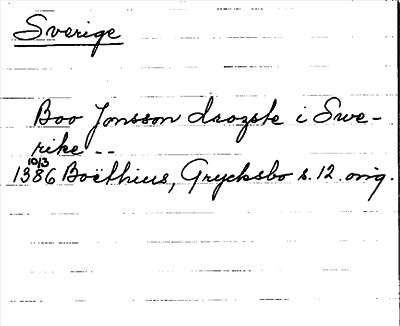 Sverige
Boo Jonsson drozste i Swe-
rike --
10/3
1386 Boëthius, Grycksbo s. 12. orig.